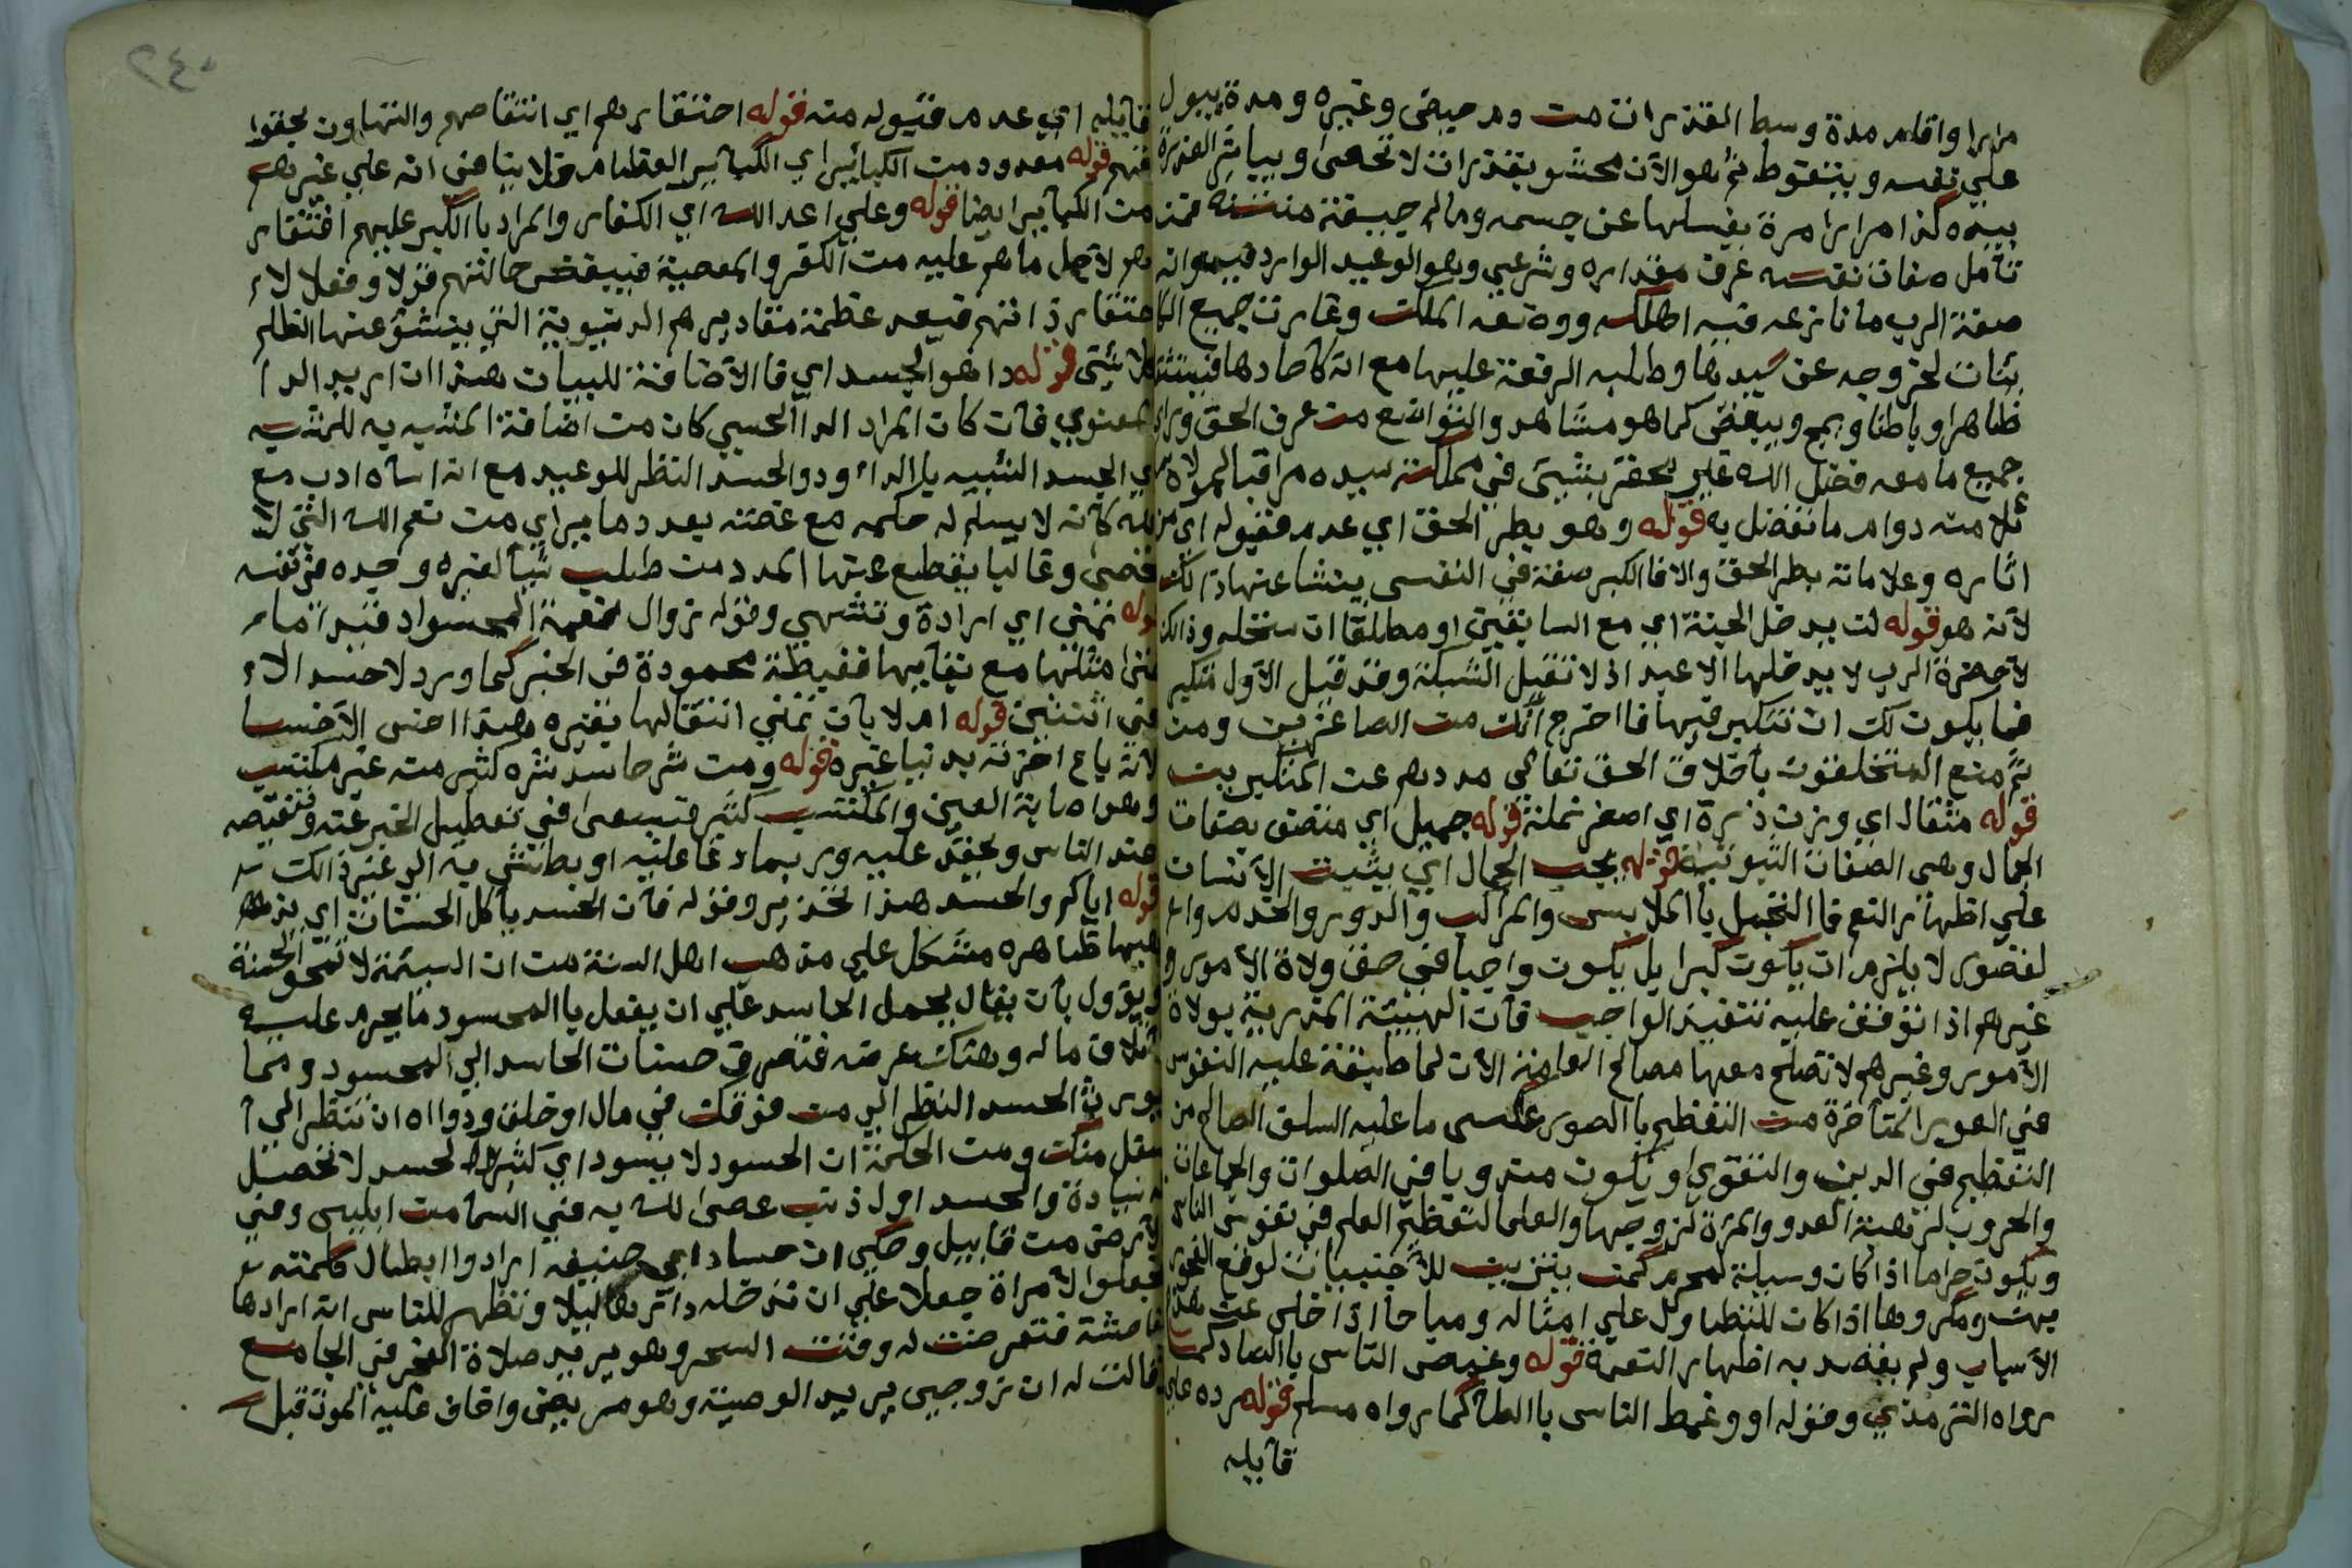 مرارا واقام مدة وسط القذرات من دم حيض وغيره ومدة يبول
على نفسه ويتغوط ثم هو الآن محشو بقذرات لا تحصى ويباشر العذرة
بيده كذا مرارا مرة يغسلها عن جسمه وماله جيفة منتنة فمن
تأمل صفات نفسه عرف مقداره وشرعي وهو الوعيد الوارد فيه وانه
صفة الرب ما نازعه فيه اهلكه ووضعه الملك وغارت جميع الكا
ئنات لخروجه عن سيدها وطلبه الرفعة عليها مع انه كآحادها
ظاهرا وباطنا ويمج ويبغض كما هو مشاهد والتواضع من عرف الحق وراى
جميع ما معه فضل الله عليه لم يحقر شيئ في مملكة سيده مراقبا لمولاه
ئلا منه دوام ما تفضل به قوله وهو بطر الحق اي عدم قبوله اي من
اثاره وعلاماته بطر الحق والا فا الكبر صفة في النفس ينشا عنها ذالك
لأنه هو قوله لن يدخل الجنة اي مع السابقين او مطلقا ان ستحله وذالك
لآحضرة الرب لا يدخلها الا عبد اذ لا تقبل الشركة وقد قيل الأول متكبر
فما يكون لك ان تتكبر فيها فا اخرج انك من الصاغرين ومن
ثم منع المتخلقون بآخلاق الحق تعالى مددهم عن المتكبرين
قوله مثقال اي وزن ذرة اي اصغر نملة قوله جميل اي متصف بصفات
الجمال وهي الصفات الثبوتية قوله يحب الجمال اي يثيب الآنسان
على اظهار النعم فا التجمل با الملابس والمراكب والدور والخدم وا
لقصور لا يلزم ان يكون كبرا بل يكون واجبا في صف ولاة الأمور و
غيرهم اذا توقف عليه تنفيذ الواجب فآن الهيئة المزرية بولاة
الأمور وغيرهم لا تصلح معها مصالح العامة الآن لما طبعة عليه النفوس
في العصور المتآخرة من التعظيم با الصور عكس ما عليه السلف الصالح من
التعظيم في الدين والتقوى ويكون مندوبا في الصلوات والجماعات
والحروب لرهبة العدو والمرآة لزوجها والعلما لتعظيم العلم في نفوس الناس
ويكون حراما اذا كان وسيلة لمحرم كمن يتزين للآجنبيات لوقع الفجور
بهن ومكروها اذا كان للتطاول على امثاله ومباحا اذا خلى عن هذه
الآسباب ولم يقصد به اظهار النعمة قوله وغمص الناس با الصاد كما
رواه الترمذي وقوله او وغمط الناس با الطا كما رواه مسلم قوله رده على
قآيله
٢٤٠
قآيله اي عدم قبوله منه قوله احتقارهم اي انتقاصهم والتهاون بحقو
قهم قوله معدود من الكبائر اي الكبآير العظام ولا ينا في انه على غيرهم
من الكبآير ايضا قوله وعلى اعد الله اي الكفار والمراد با الكبر عليهم احتقار
هم لآجل ما هم عليه من الكفر والمعصية فيبغض حالتهم قولا وفعلا لا
حتقار ذاتهم فيعد عظمة مقاديرهم الدنيوية التي ينشؤ عنها الظلم
كلا شئى قوله دا هو الحسد اي فا الآضافة للبيان هذا ان اريد الدا
المعنوي فآن كان المراد الدا الحسي كان من اضافة المشبه به للمشبه
اي الحسد الشبيه با الداء ودوا الحسد النظر للوعيد مع انه اساة ادب مع
الله كآنه لا يسلم له حكمه مع غصته بعدد ما يراى من نعم الله التي لا
تحصى وغالبا يقطع عنها المدد من طلب شيآ لغيره وجده في نفسه
قوله تمنى اي ارادة وتشهي وقوله زوال نعمة المحسود فيد امار
تمنى مثلها مع بقايها فغبطة محمودة في الخير كما ورد لا حسد الا
في اثنين قوله ام لا بآن تمنى انتقالها بغيره وهذا اخس الآخسا
لآنه باع اخرته بدنيا غيره قوله ومن شر حاسد شره كثير منه غير مكتسب
وهو اصابة العين والمكتسب كثير فيسعى في تعطيل الخير عنه وتنقيصه
عند الناس ويحقد عليه وربما دعا عليه او بطش به الى غير ذالك
قوله اياكم والحسد هذا تحذير وقوله فآن الحسد يآكل الحسنات اي يذ
هبها ظاهره مشكل على مذهب اهل السنة من ان السيئة لا تمحو الحسنة
ويؤول بآن يقال يحمل الحاسد على ان يفعل با المحسود ما يحرم عليه
كآتلاف ماله وهتك عرضه فتصرف حسنات الحاسد الى المحسود ومما
يورث الحسد النظر الى من فوقك في مال او خلق ودواه ان تنظر الى ا
سفل منك ومن الحكمة ان الحسود لا يسود اي كثير الحسد لا تحصل
له سيادة والحسد اول ذنب عصى الله به في السما من ابليس وفي
الآرض من قابيل وحكي ان حساد ابي حنيفه ارادوا ابطال كلمته
فجعلوا لآمراة جعلا على ان تدخله دارها ليلا وتظهر للناس انه ارادها
فاحشة فتعرضت له وقت السحر وهو يريد صلاة الفجر في الجامع
فقالت له ان زوجي يريد الوصية وهو مريض واخاف عليه الموت قبل